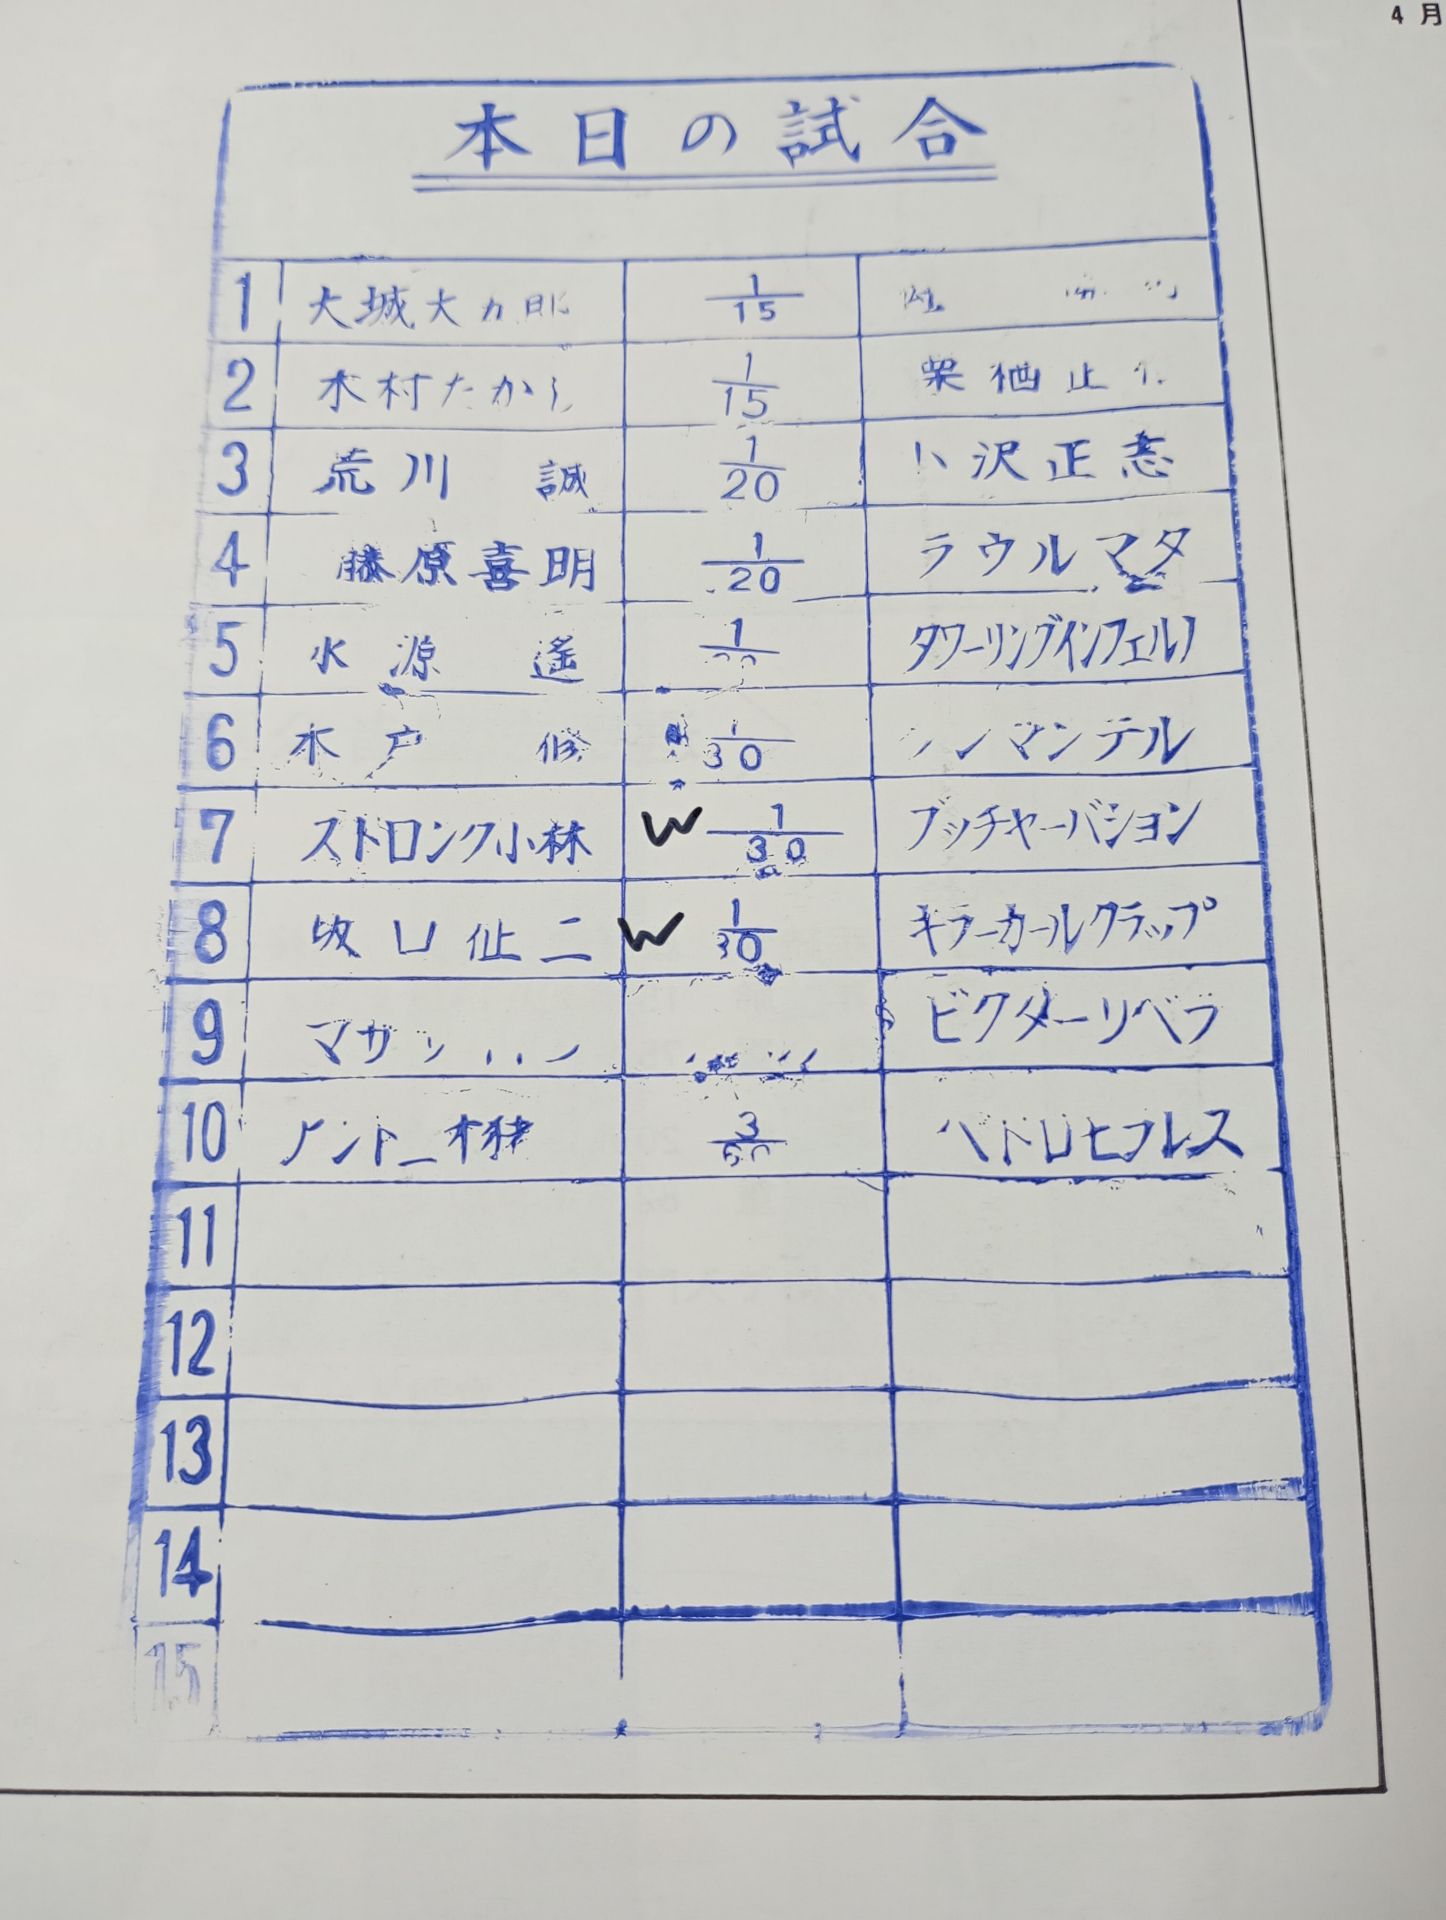 4月
本日の試合
1 大城大 1/15
2 木村たかし 1/15
3 荒川 誠 1/20 小沢正志
4 藤原喜明 1/20 ラウルマタ
5 水源 遙 1 タワーリングインフェルノ
6 木戸 修 1/30 マンテル
7 ストロング小林 W 1/30 ブッチャーバション
8 坂口征二 W 1/30 キラーカールクラップ
9 マサ ビクターリベラ
10 アントニオ猪 3 ペドロモラレス
11
12
13
14
15